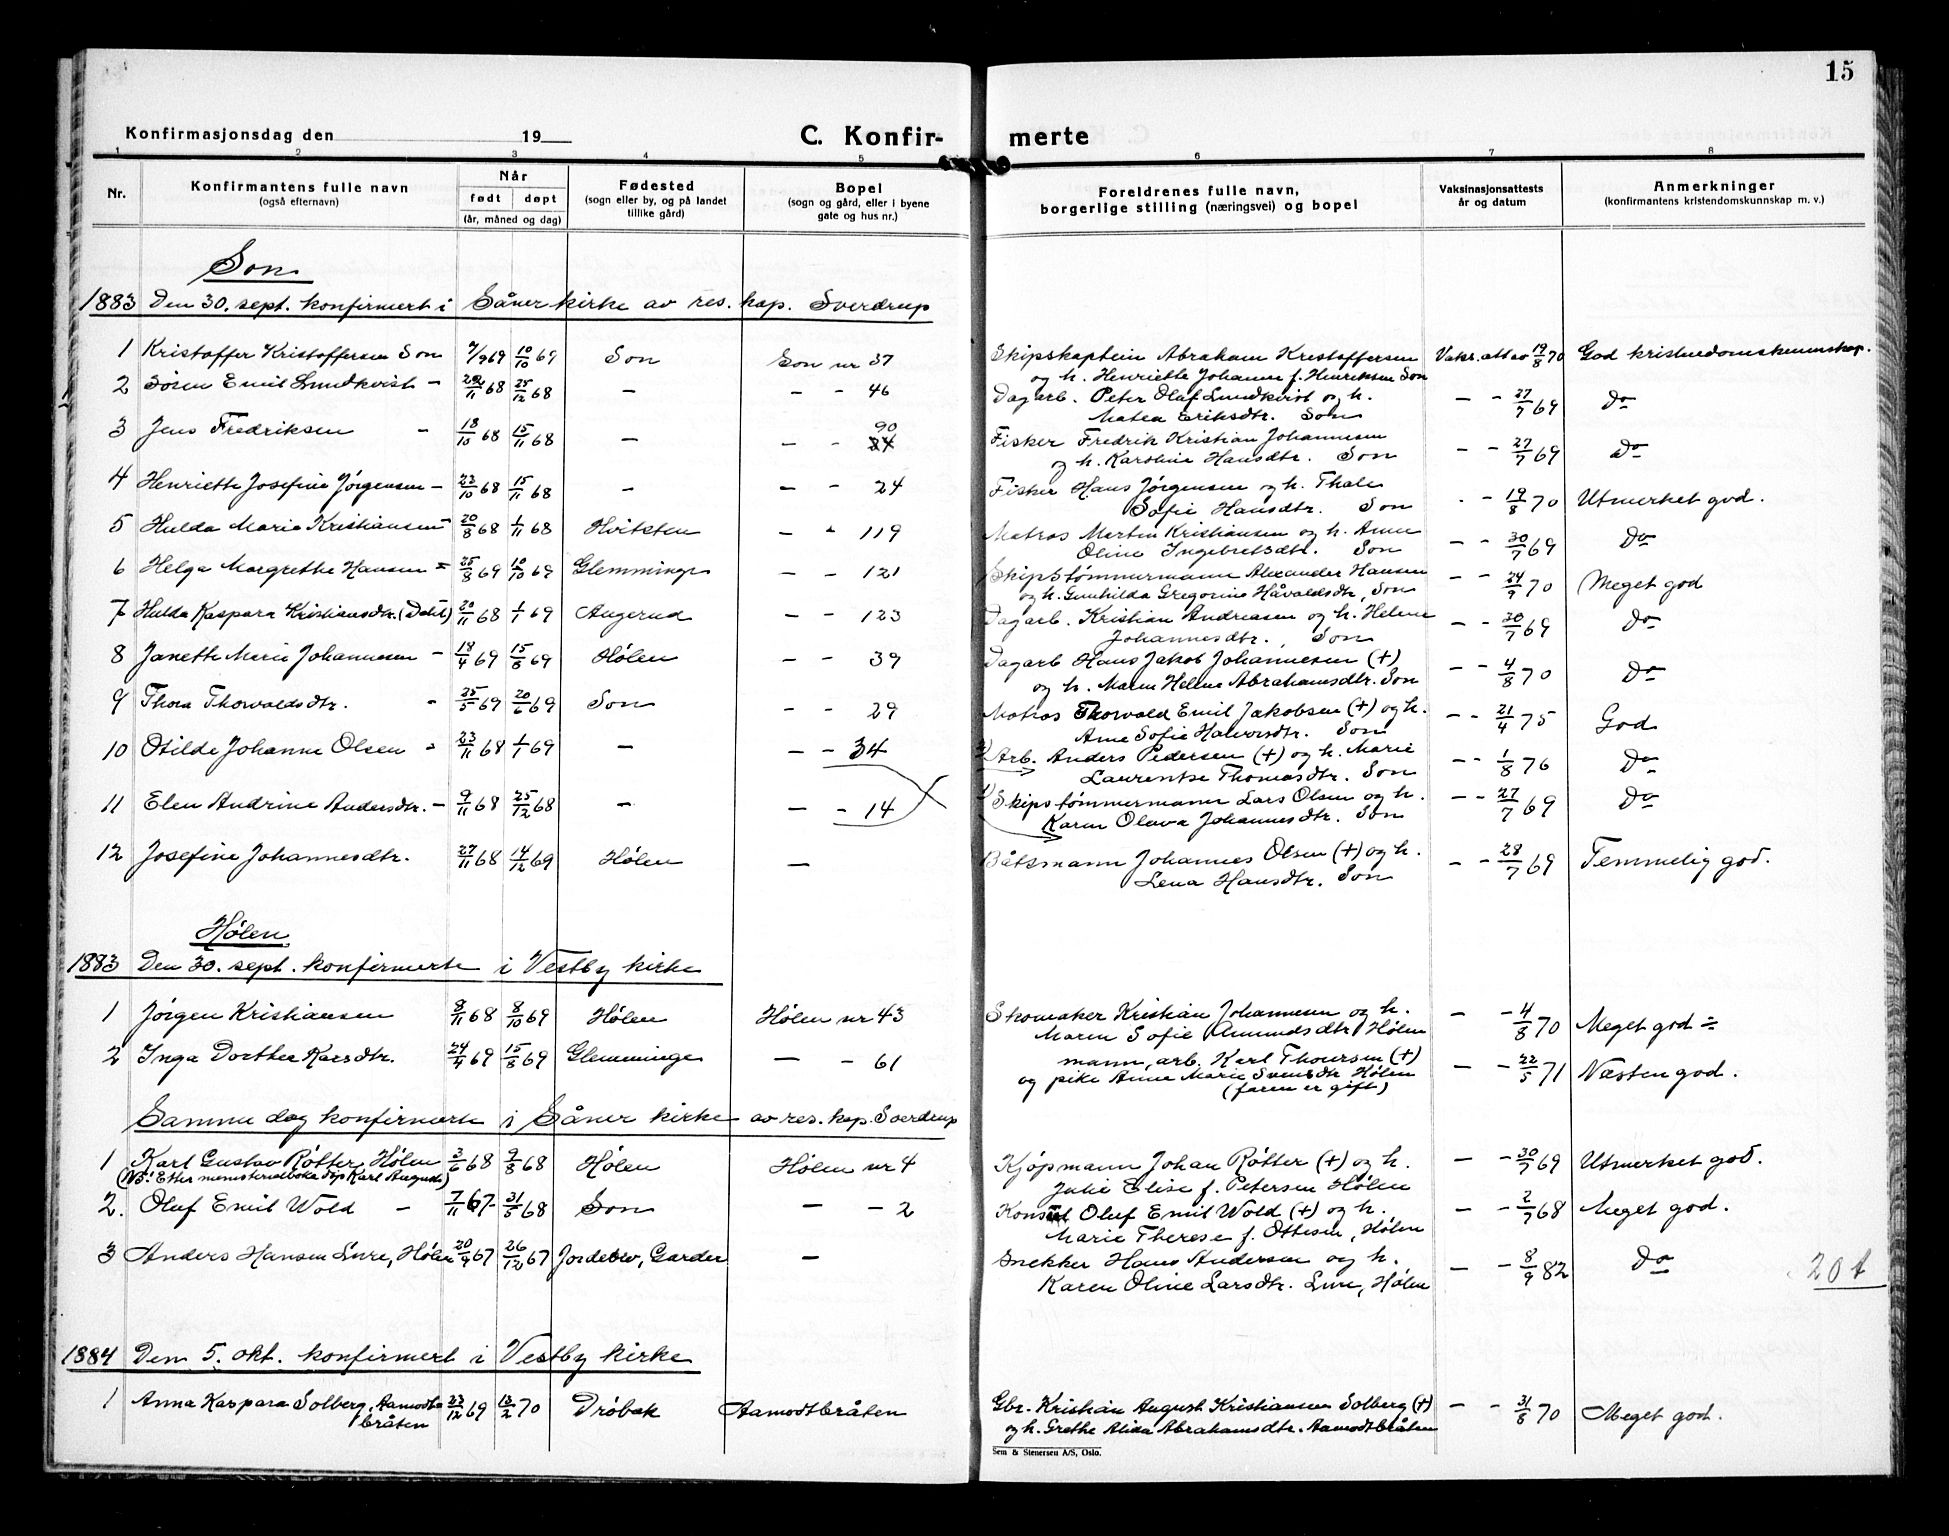 15
Konfirmasjonsdag den 19
C. Konfir- merte
1 2 3 4 5 6 7 8
Nr.
Konfirmantens fulle navn
(også efternavn)
Når
født døpt
(år, måned og dag)
Fødested
(sogn eller by, og på landet
tillike gård)
Bopel
(sogn og gård, eller i byene
gate og hus nr.)
Foreldrenes fulle navn,
borgerlige stilling (næringsvei) og bopel
Vaksinasjonsattests
år og datum
Anmerkninger
(konfirmantens kristendomskunnskap m. v.)
Son
1883 Den 30. sept. konfirmert i Såner kirke av res. kap. Sverdrup
1 Kristoffer Kristoffersen Son 7/9 69 10/10 69 Son Son nr 37 Skipskaptein Abraham Kristoffersen Vaks. att av 19/8 70 God kristendomskunnskap.
og h. Henriette Johanne f. Henriksen Son
2 Søren Emil Lundkvist - 22/11 68 25/12 68 - - - 46 Dagarb. Peter Oluf Lundkvist og h. - - 27/7 69 Do
Matea Eriksdtr. Son
3 Jens Fredriksen - 18/10 68 15/11 68 - - - 90 24 Fisker Fredrik Kristian Johannesen - - 27/7 69 Do
og h. Karoline Hansdtr. Son
4 Henriette Josefine Jørgensen - 23/10 68 15/11 68 - - - 24 Fisker Hans Jørgensen og h. Thale - - 19/8 70 Utmerket god.
Sofie Hansdtr. Son
5 Hulda Marie Kristiansen - 20/8 68 1/11 68 Hvitsten - - 119 Matros Martin Kristiansen og h. Anne - - 30/7 69 Do
Oline Ingebretsdtr. Son
6 Helga Margrethe Hansen = 25/8 69 10/10 69 Glemminge - - 121 Skipstømmermann Alexander Hansen - - 24/9 70 Meget god
og h. Gunhilda Gregorine Håvaldsdtr, Son
7 Hulda Kaspara Kristiansdtr. (Dahl) 20/11 68 1/1 69 Augerud - - 123 Dagarb. Kristian Andreasen og h. Helene - - 30/7 69 Do
Johannesdtr. Son
8 Janette Marie Johannesen - 18/4 69 15/8 69 Hølen - - 39 Dagarb Hans Jakob Johannesen (+) - - 4/8 70 Do
og h. Maren Helene Abrahamsdtr. Son
9 Thora Thorvaldsdtr. - 25/5 69 20/6 69 Son - - 29 Matros Thorvald Emil Jakobsen (+) og h. - - 21/4 75 God
Anne Sofie Halvorsdtr. Son
10 Otilde Johanne Olsen - 23/11 68 1/1 69 - - - 34 2) Arb. Anders Pedersen (+) og h. Marie - - 1/8 76 Do
Laurentse Thomasdtr. Son
11 Elen Andrine Andersdtr. - 9/11 68 25/12 68 - - - 14 1) Skipstømmermann Lars Olsen og h. - - 27/7 69 Do
Karen Olava Johannesdtr. Son
12 Josefine Johannesdtr. 27/11 68 14/12 69 Hølen - Båtsmann Johannes Olsen (+) og h. - - 28/7 69 Temmelig god.
Lena Hansdtr. Son
Hølen
1883 Den 30. sept. konfirmerte i Vestby kirke
1 Jørgen Kristiansen 8/11 68 8/10 69 Hølen Hølen nr 43 Skomaker Kristian Johannesen og h. - - 4/8 70 Meget god
Maren Sofie Amundsdtr Hølen
2 Inga Dorthea Karsdtr. 24/4 69 15/8 69 Glemminge - - 61 mann, arb. Karl Thoursen (+) - - 22/5 71 Næsten god.
og pike Anne Marie Svensdtr Hølen
(faren er gift)
Samme dag konfirmerte i Såner kirke av res. kap. Sverdrup
1 Karl Gustav Røtter, Hølen 3/6 68 9/8 68 Hølen Hølen nr 4 Kjøpmann Johan Røtter (+) og h. - - 30/7 69 Utmerket god.
(NB! Etter ministerialboka døpt Karl August)
Julie Elise f. Petersen Hølen
2. Oluf Emil Wold - 7/11 67 31/5 68 Son - - 2 Konsul Oluf Emil Wold (+) og h. - - 2/7 68 Meget god.
Marie Therese f. Ottesen, Hølen
3 Anders Hansen Lure, Hølen 20/9 67 26/12 67 Jordebro, Garder - Snekker Hans Andersen og h. - - 8/9 82 Do
Karen Oline Larsdtr. Lure, Hølen
20 t
1884 Den 5. okt. konfirmert i Vestby kirke
1 Anna Kaspara Solberg, Aamodt- 23/12 69 13/2 70 Drøbak Aamodtbråten Gbr. Kristian August Kristiansen Solberg (+) - - 31/8 70 Meget god.
bråten
og h. Grethe Alida Abrahamsdtr. Aamodtbråten
Sem & Stenersen A/S, Oslo.